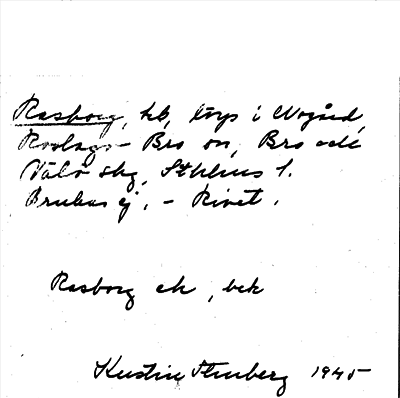 Rasborg, hb, torp i Norgård,
Roslags-Bro sn, Bro och
Vätö skg, Sthlms l.
Brukas ej. - Rivet.
Rasborg ek, bek
Kerstin Stenberg 1945